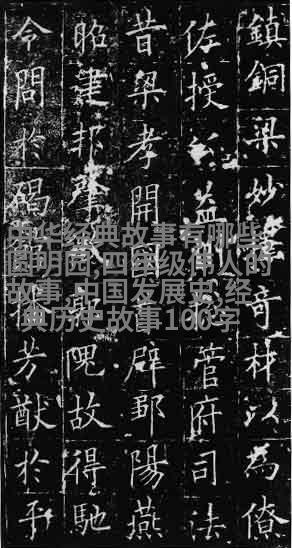 鎮銅梁妙奇材以為僚
佐授益州管府司法
昔梁孝開國辟鄒陽燕
昭建邦肇郭隗故得馳
令問於碣芳猷於平
中华经典故事有哪些,
圆明园,四年级伟人的
故事,中国发展史,经
典历史故事100字